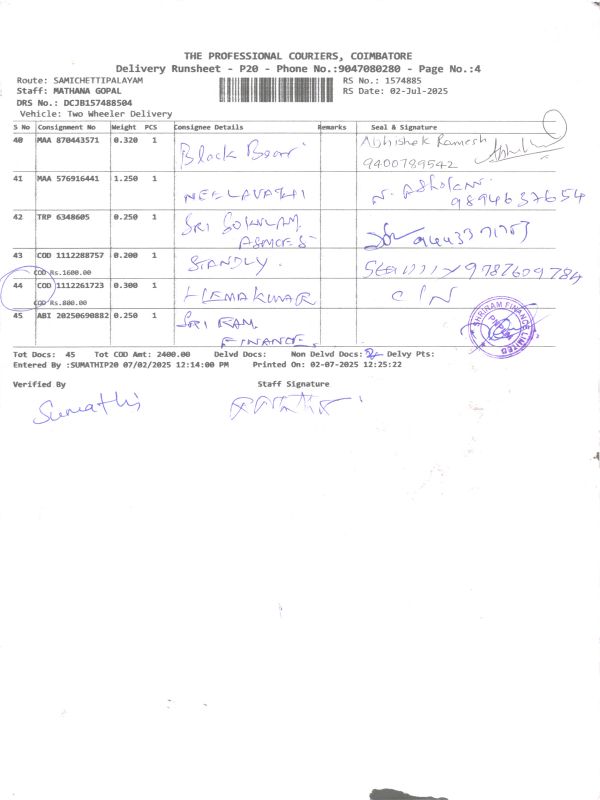 THE PROFESSIONAL COURIERS, COIMBATORE
Delivery Runsheet - P20 - Phone No.:9047080280 - Page No.:4
Route: SAMICHETTIPALAYAM RS No.: 1574885
Staff: MATHANA GOPAL RS Date: 02-Jul-2025
DRS No.: DCJB157488504
Vehicle: Two Wheeler Delivery
S No Consignment No Weight PCS Consignee Details Remarks Seal & Signature
40 MAA 870443571 0.320 1 Black Boar Abhishek Ramesh
9400789542
41 MAA 576916441 1.250 1 NEELAVATHI N. Asholan
9894637654
42 TRP 6348605 0.250 1 SRI GOKULAM
43 COD 1112288757 0.200 1 STANDLY. 9787609784
COD Rs.1600.00
44 COD 1112261723 0.300 1 HEMAKUMAR C/N
COD Rs.800.00
45 ABI 20250690882 0.250 1 SRI RAM
FINANCE.
SHRIRAM FINANCE LIMITED
Tot Docs: 45 Tot COD Amt: 2400.00 Delvd Docs: Non Delvd Docs: Delvy Pts:
Entered By :SUMATHIP20 07/02/2025 12:14:00 PM Printed On: 02-07-2025 12:25:22
Verified By Staff Signature
Sumathi